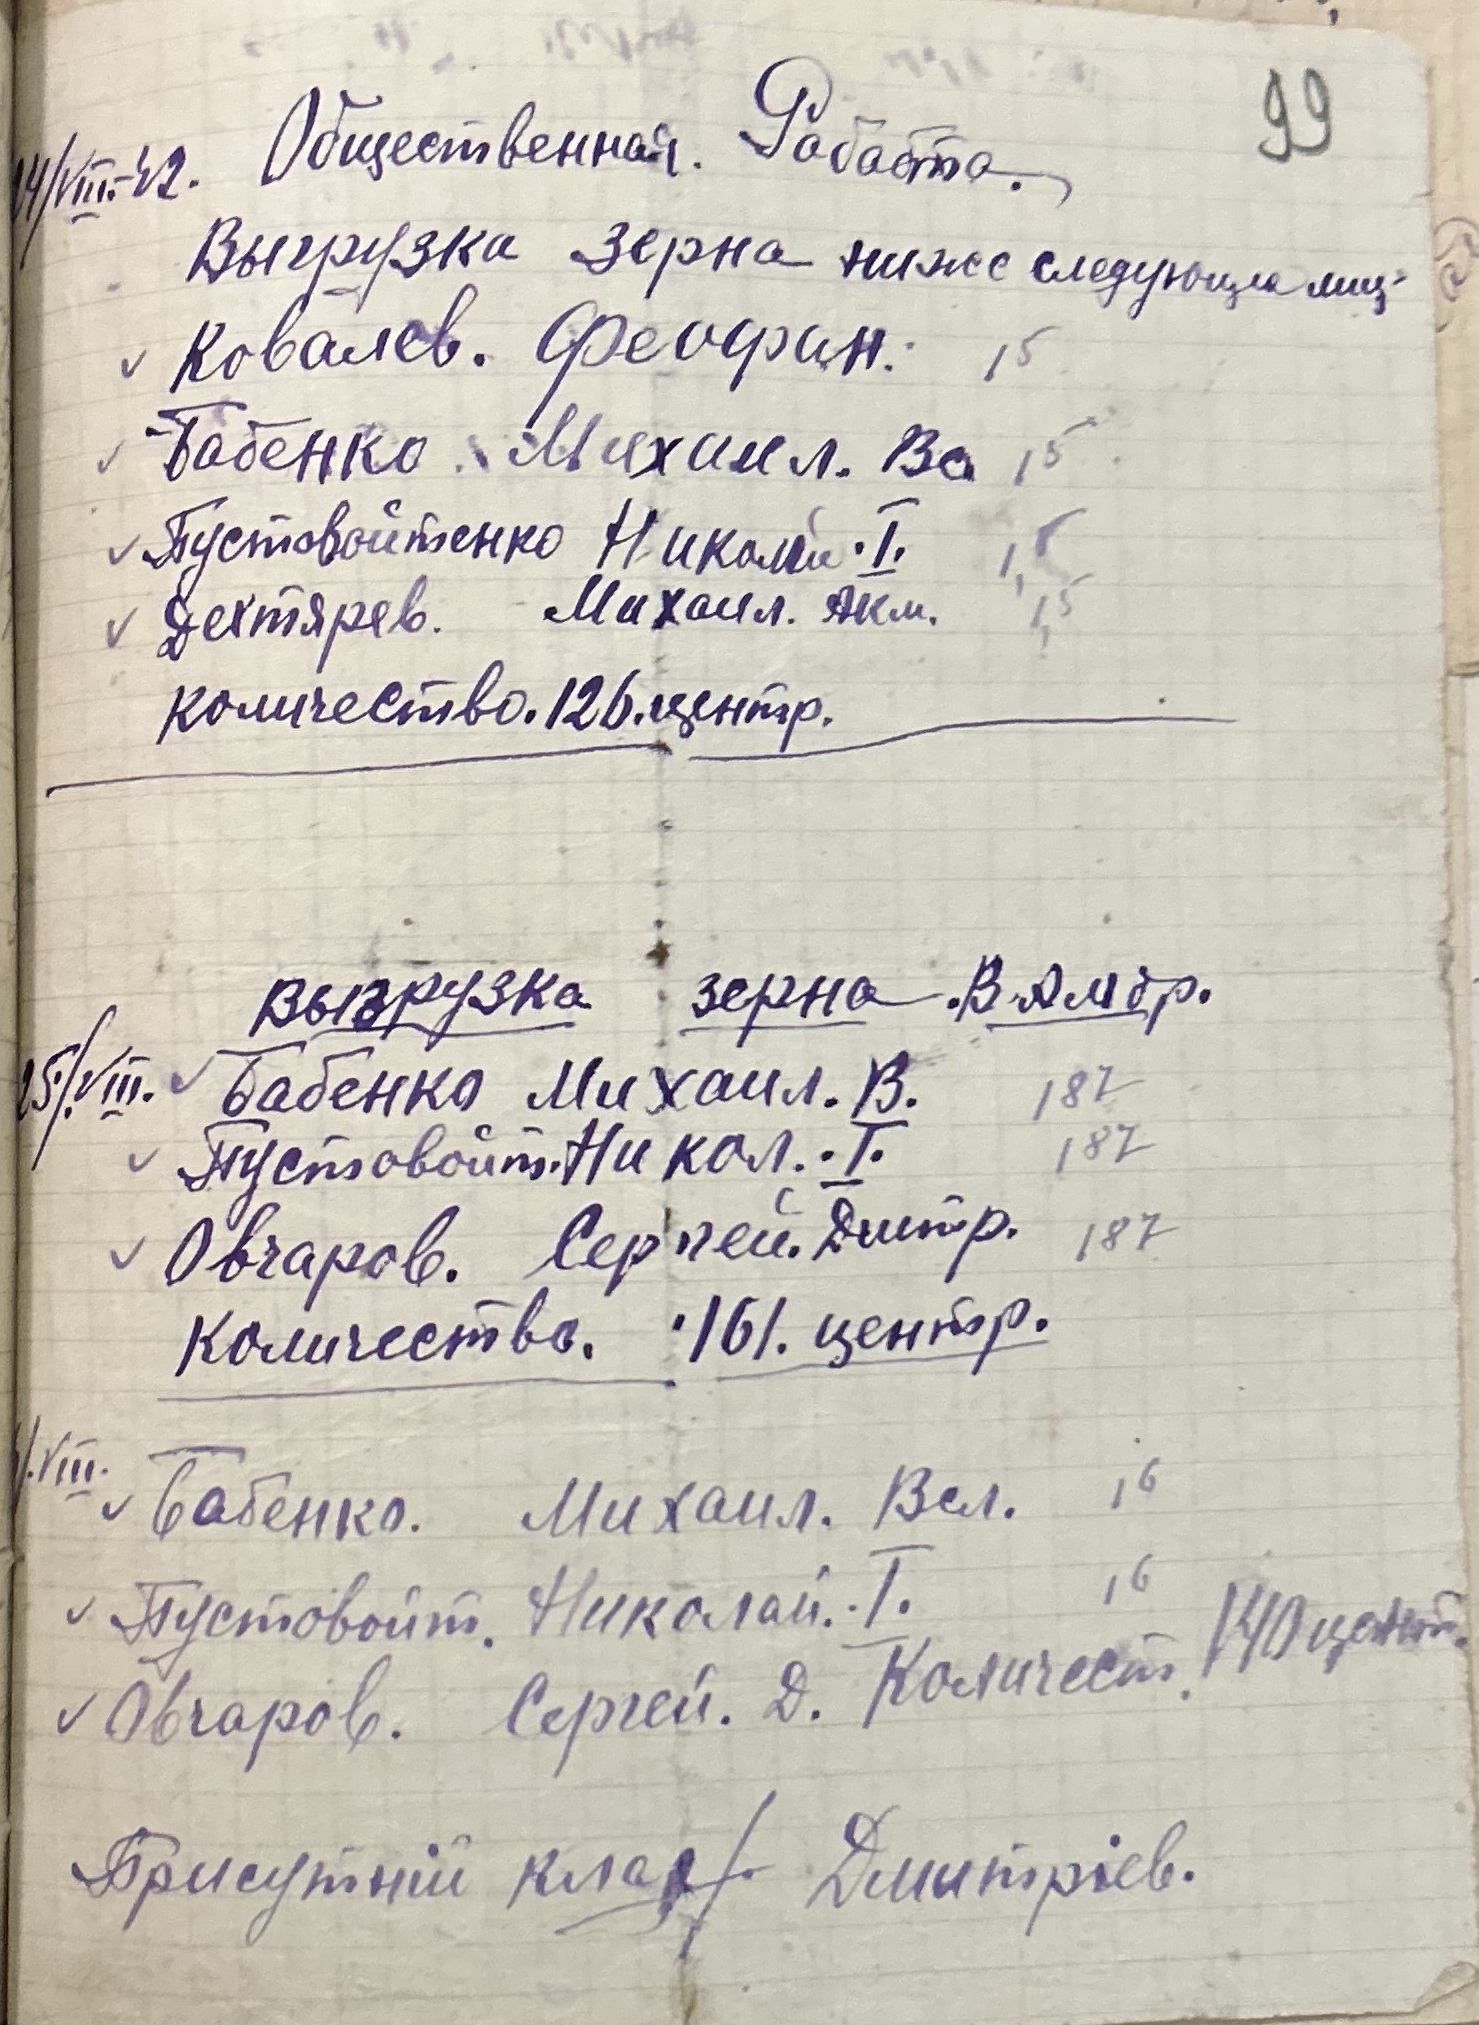 99
24/VIII.-42. Общественная. Работа.
Выгрузка зерна ниже следующие лиц.
Ковалев. Феофан. 1,5
Бабенко. Михаил. Ва 1,5
Пустовойтенко Николай. І. 1,5
Дехтярев. Михаил. Аким. 1,5
количество. 126. центр.
Выгрузка зерна. В Амбр.
25/.VIII. Бабенко Михаил. В. 1,87
Пустовойт. Никол. І. 1,87
Овчаров. Сергей. Дмитр. 1,87
Количество. 161. центр.
VIII. Бабенко. Михаил. Вас. 1,6
Пустовойт. Николай. І. 1,6
Овчаров. Сергей. Д. Количест. 140 цент.
Присутній клад/ Дмитріев.